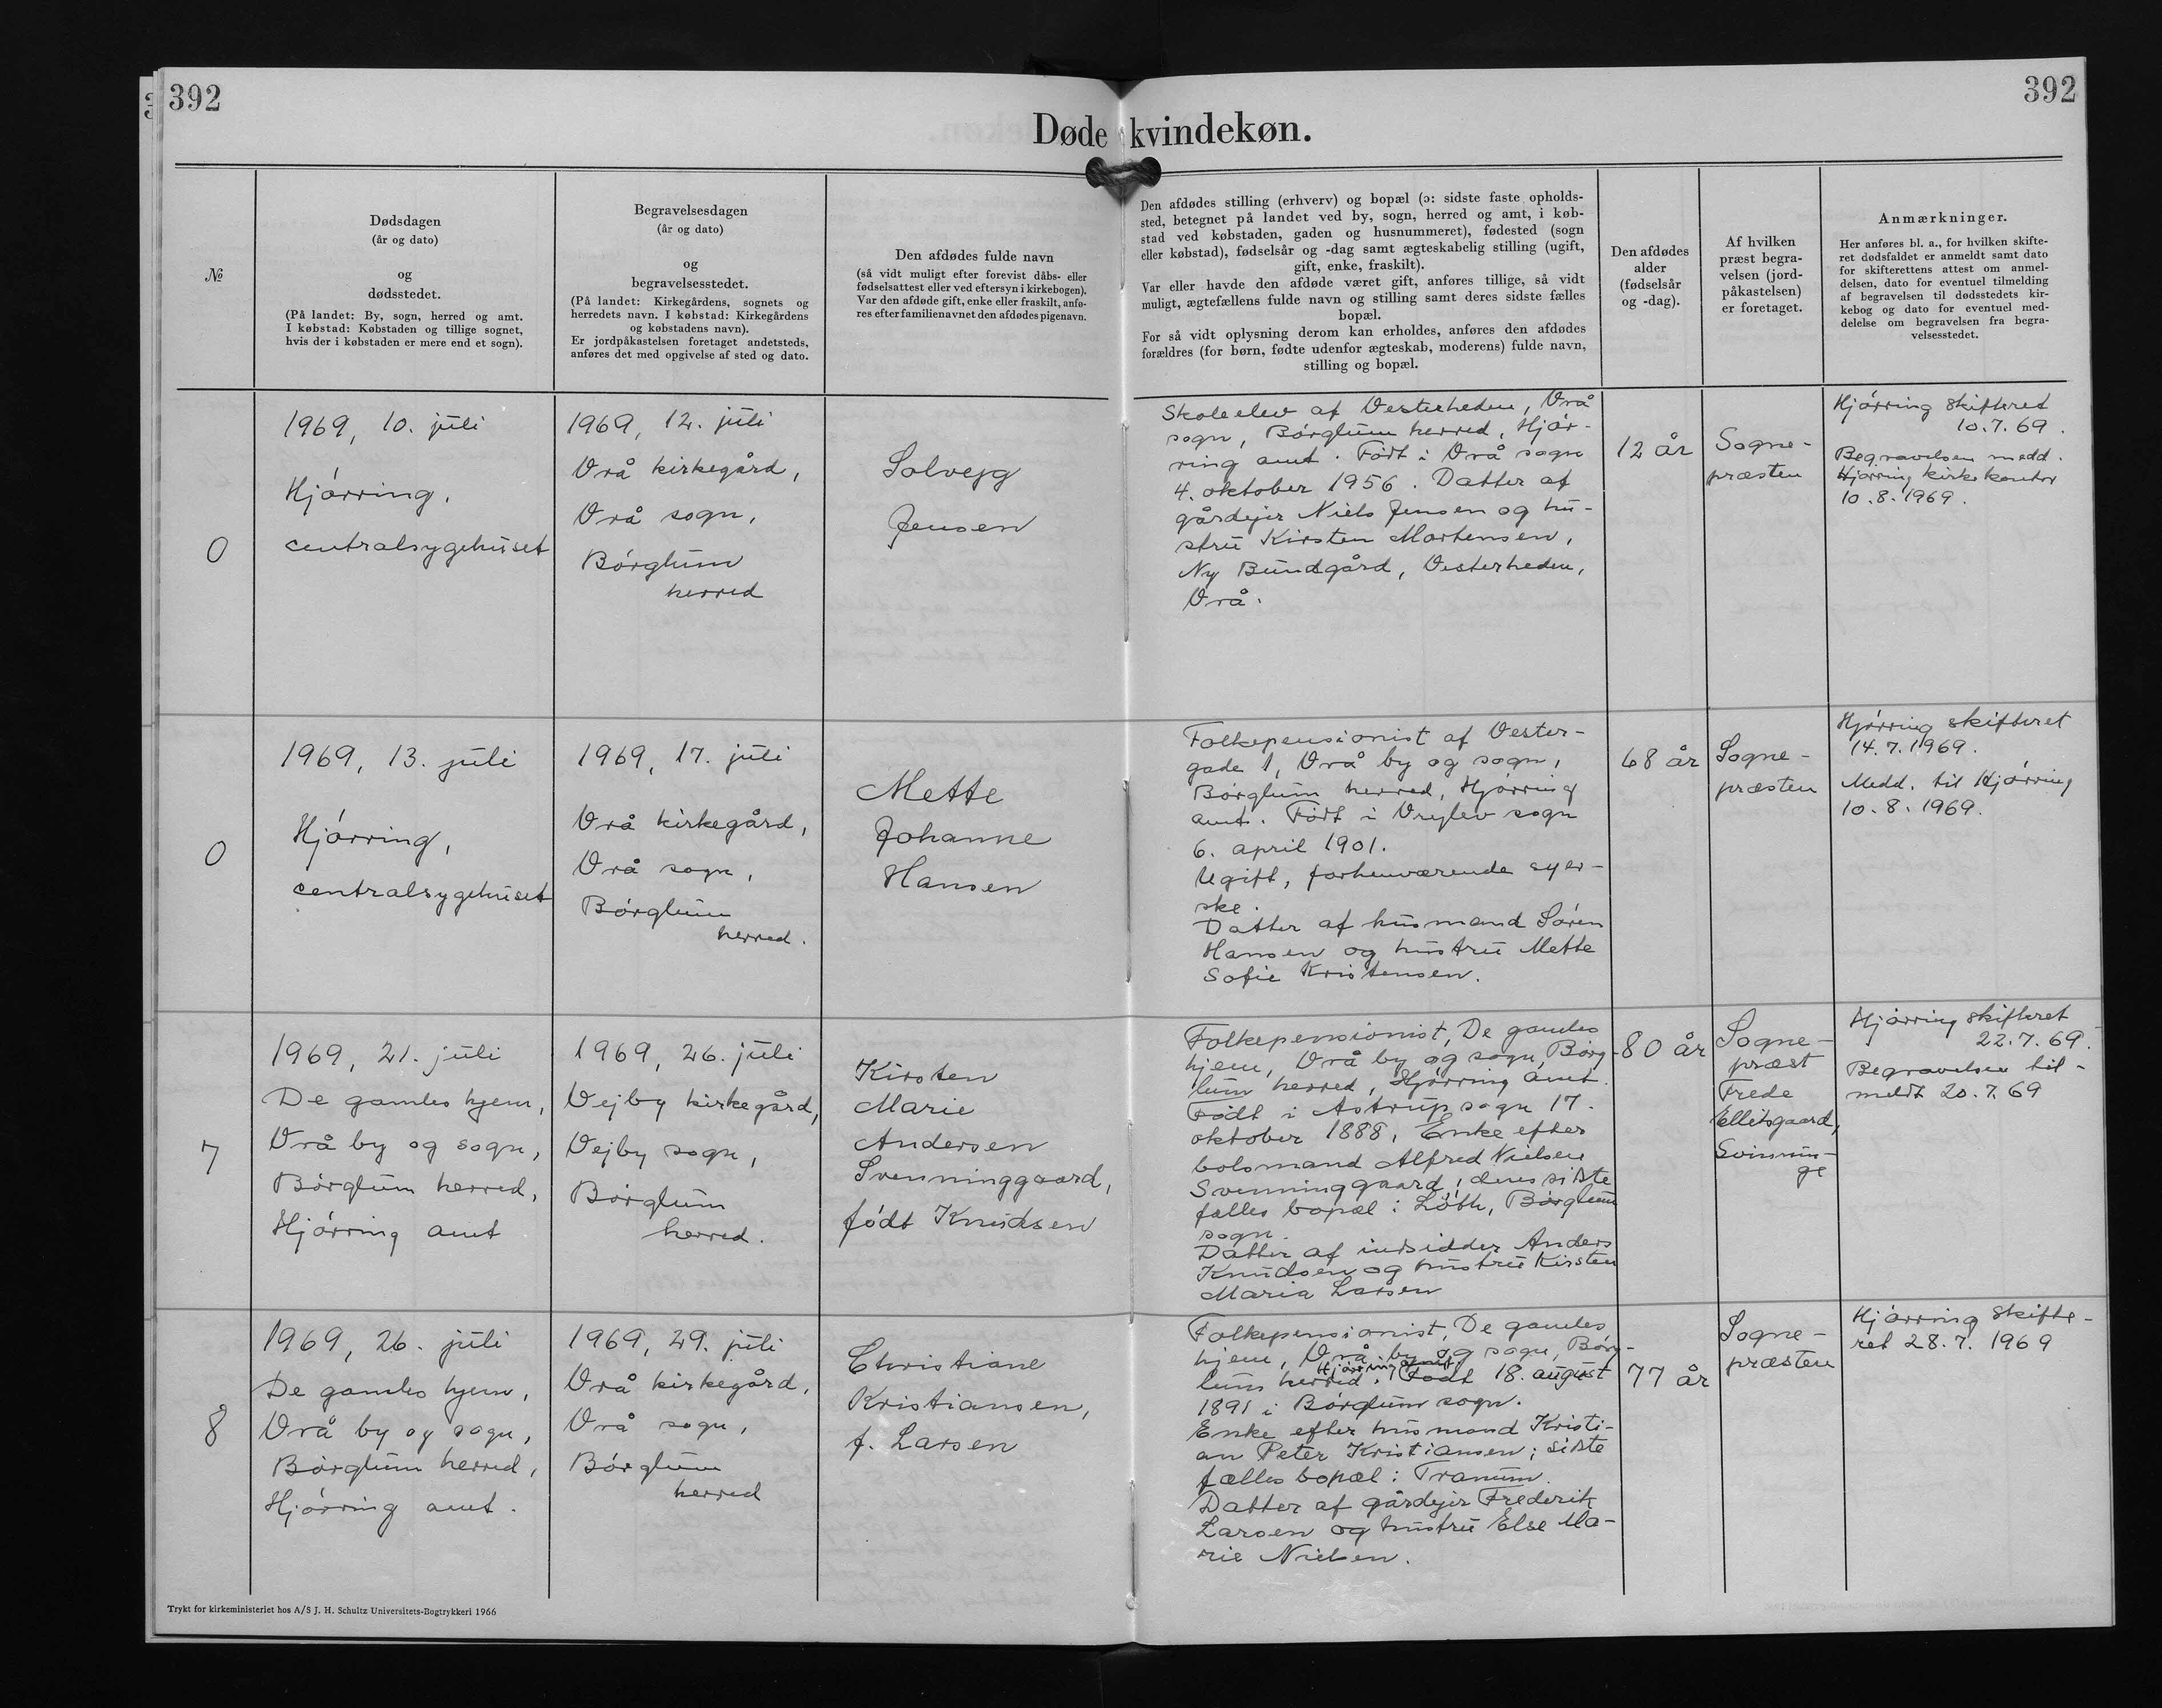 392
392
Døde kvindekøn.
№
Dødsdagen
(år og dato)
og
dødsstedet.
(På landet: By, sogn, herred og amt.
I købstad: Købstaden og tillige sognet,
hvis der i købstaden er mere end et sogn).
Begravelsesdagen
(år og dato)
og
begravelsesstedet.
(På landet: Kirkegårdens, sognets og
herredets navn. I købstad: Kirkegårdens
og købstadens navn).
Er jordpåkastelsen foretaget andetsteds,
anføres det med opgivelse af sted og dato.
Den afdødes fulde navn
(så vidt muligt efter forevist dåbs- eller
fødselsattest eller ved eftersyn i kirkebogen).
Var den afdøde gift, enke eller fraskilt, anfø-
res efter familienavnet den afdødes pigenavn.
Den afdødes stilling (erhverv) og bopæl (ɔ: sidste faste opholds-
sted, betegnet på landet ved by, sogn, herred og amt, i køb-
stad ved købstaden, gaden og husnummeret), fødested (sogn
eller købstad), fødselsår og -dag samt ægteskabelig stilling (ugift,
gift, enke, fraskilt).
Var eller havde den afdøde været gift, anføres tillige, så vidt
muligt, ægtefællens fulde navn og stilling samt deres sidste fælles
bopæl.
For så vidt oplysning derom kan erholdes, anføres den afdødes
forældres (for børn, fødte udenfor ægteskab, moderens) fulde navn,
stilling og bopæl.
Den afdødes
alder
(fødselsår
og -dag).
Af hvilken
præst begra-
velsen (jord-
påkastelsen)
er foretaget.
Anmærkninger.
Her anføres bl. a., for hvilken skifte-
ret dødsfaldet er anmeldt samt dato
for skifterettens attest om anmel-
delsen, dato for eventuel tilmelding
af begravelsen til dødsstedets kir-
kebog og dato for eventuel med-
delelse om begravelsen fra begra-
velsesstedet.
0
1969, 10. juli
Hjørring,
centralsygehuset
1969, 12. juli
Vrå kirkegård,
Vrå sogn,
Børglum
herred
Solvejg
Jensen
Skoleelev af Vesterheden, Vrå
sogn, Børglum herred, Hjør-
ring amt. Født i Vrå sogn
4. oktober 1956. Datter af
gårdejer Niels Jensen og hu-
stru Kirsten Mortensen,
Ny Bundgård, Vesterheden,
Vrå.
12 år
Sogne-
præsten
Hjørring skifteret
10.7.69.
Begravelsen medd.
Hjørring kirkekontor
10.8.1969.
0
1969, 13. juli
Hjørring,
centralsygehuset
1969, 17. juli
Vrå kirkegård,
Vrå sogn,
Børglum
herred.
Mette
Johanne
Hansen
Folkepensionist af Vester-
gade 1, Vrå by og sogn,
Børglum herred, Hjørring
amt. Født i Vrejlev sogn
6. april 1901.
Ugift, forhenværende syer-
ske.
Datter af husmand Søren
Hansen og hustru Mette
Sofie Kristensen.
68 år
Sogne-
præsten
Hjørring skifteret
14.7.1969.
Medd. til Hjørring
10.8.1969.
7
1969, 21. juli
De gamles hjem,
Vrå by og sogn,
Børglum herred,
Hjørring amt
1969, 26. juli
Vejby kirkegård,
Vejby sogn,
Børglum
herred.
Kirsten
Marie
Andersen
Svenninggaard,
født Knudsen
Folkepensionist, De gamles
hjem, Vrå by og sogn, Børg-
lum herred, Hjørring amt.
Født i Astrup sogn 17.
oktober 1888, Enke efter
bolsmand Alfred Nielsen
Svenninggaard, deres sidste
fælles bopæl: Løth, Børglum
sogn.
Datter af indsidder Anders
Knudsen og hustru Kirsten
Maria Larsen
80 år
Sogne-
præst
Frede
Ellitsgaard,
Svinnin-
ge
Hjørring skifteret
22.7.69.
Begravelsen til-
meldt 20.7.69
8
1969, 26. juli
De gamles hjem,
Vrå by og sogn,
Børglum herred,
Hjørring amt.
1969, 29. juli
Vrå kirkegård,
Vrå sogn,
Børglum
herred
Christiane
Kristiansen,
f. Larsen
Folkepensionist, De gamles
hjem, Vrå by og sogn, Børg-
Hjørring amt
lum herred. Født 18. august
1891 i Børglum sogn.
Enke efter husmand Kristi-
an Peter Kristiansen; sidste
fælles bopæl: Tranum.
Datter af gårdejer Frederik
Larsen og hustru Else Ma-
rie Nielsen.
77 år
Sogne-
præsten
Hjørring skifte-
ret 28.7.1969
Trykt for kirkeministeriet hos A/S J. H. Schultz Universitets-Bogtrykkeri 1966